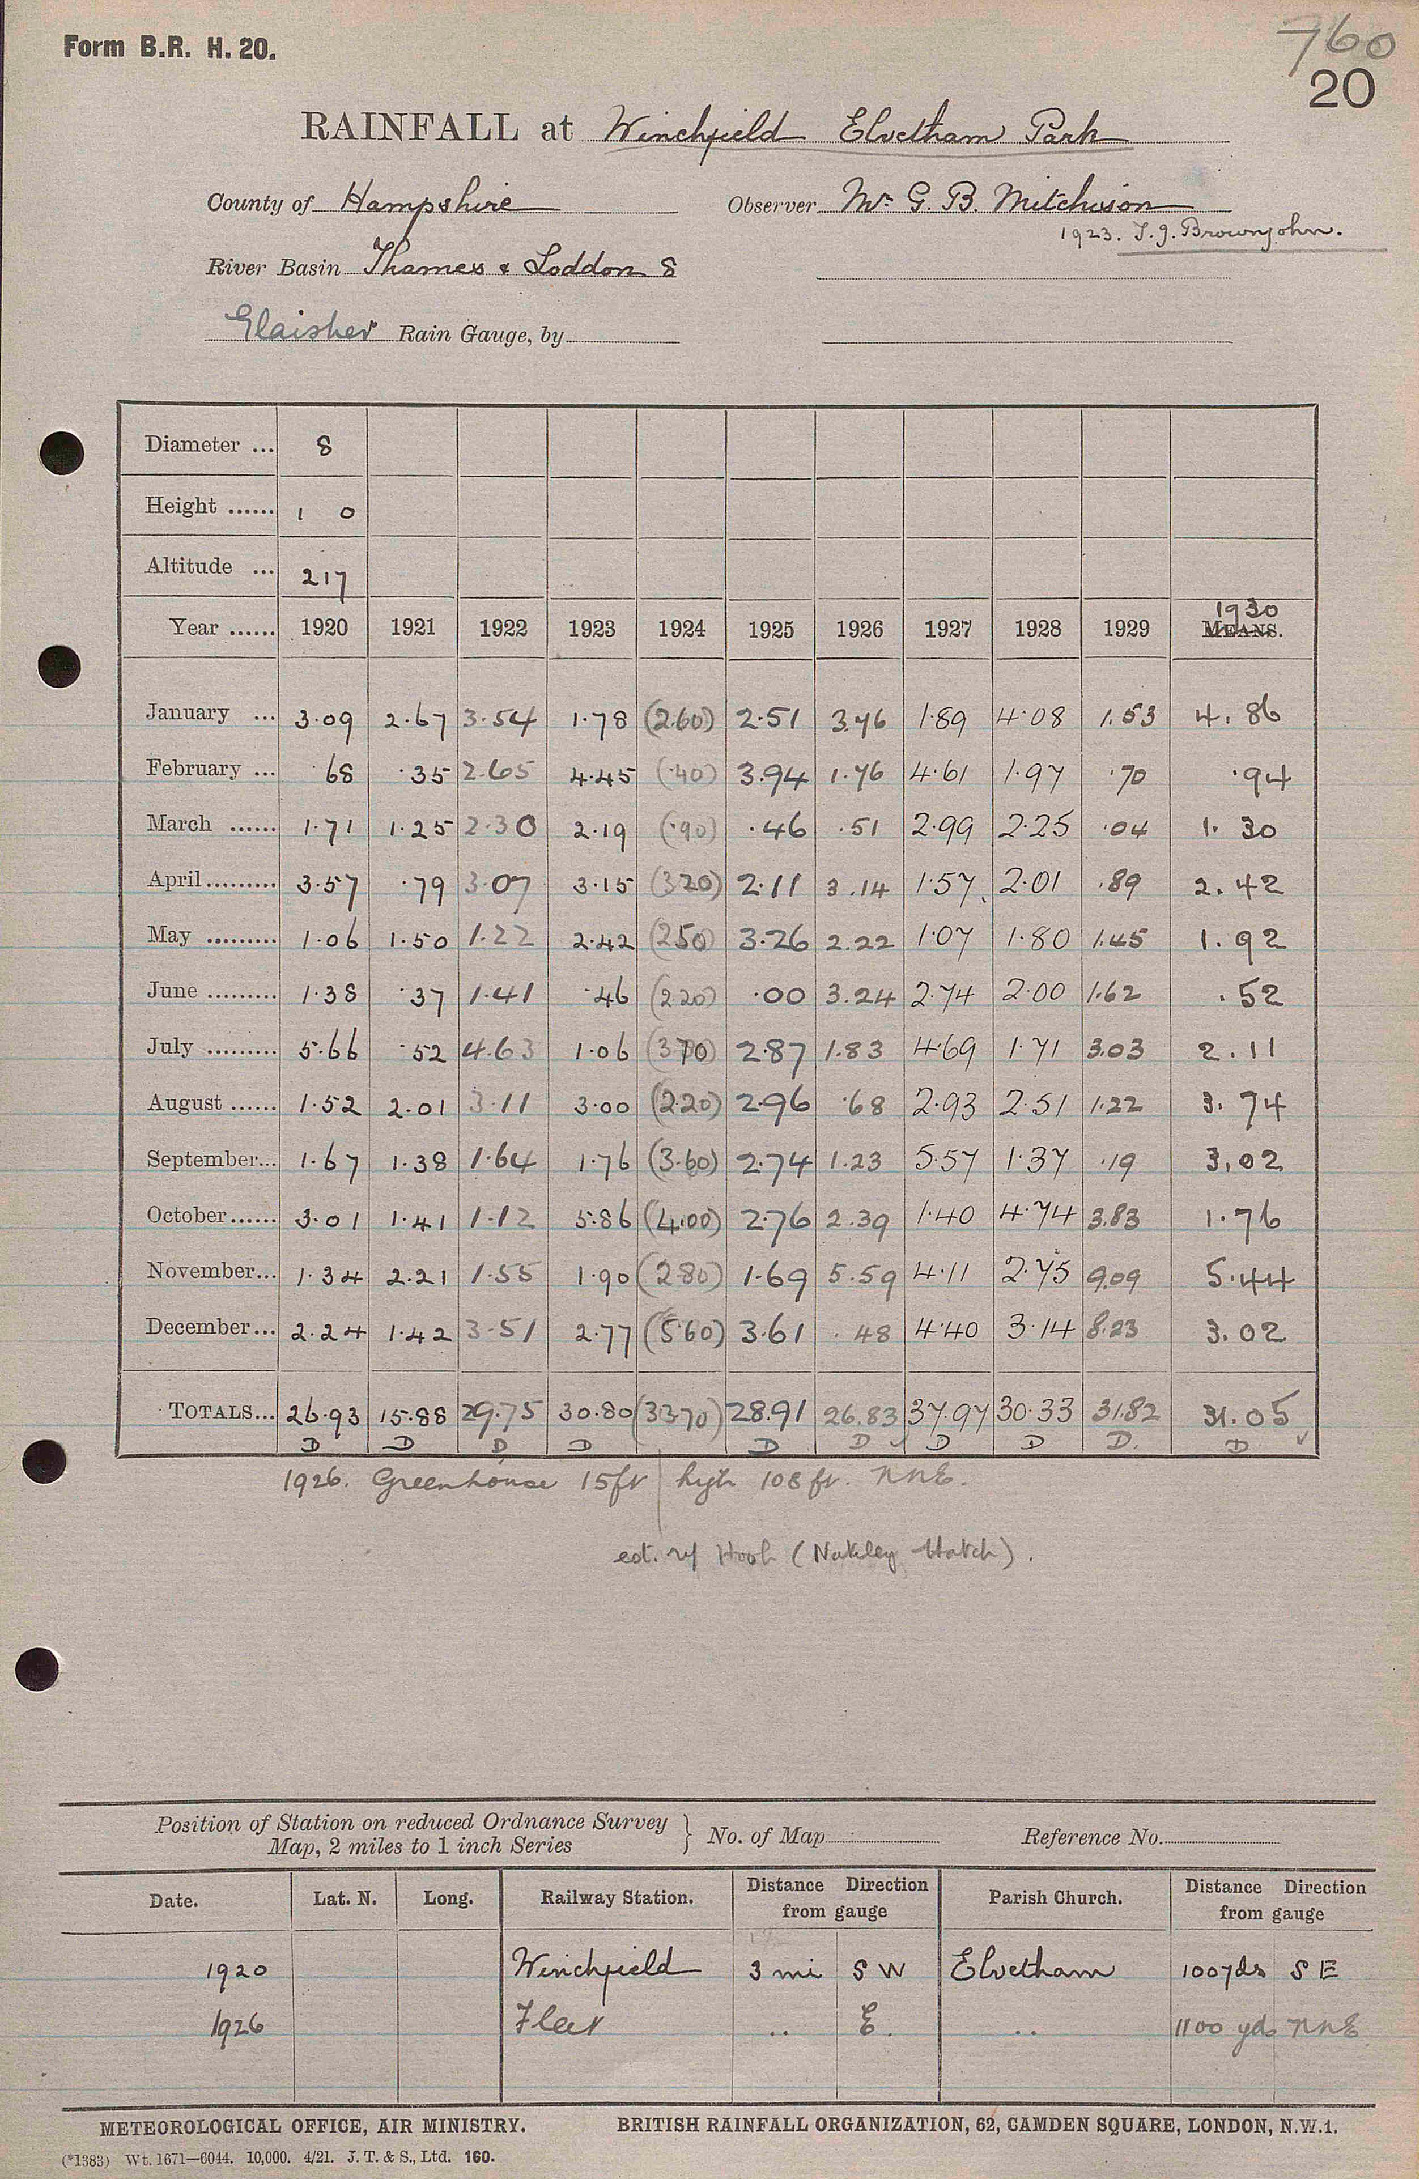 Form B.R. H. 20.
760
20
RAINFALL at Winchfield Elvetham Park
County of Hampshire Observer Mr. G. B. Mitchison
1923. T. J. Brownjohn.
River Basin Thames & Loddon 8
Glaisher Rain Gauge, by
Diameter ... 8
Height ...... 1 0
Altitude ... 217
1930
Year ...... 1920 1921 1922 1923 1924 1925 1926 1927 1928 1929 MEANS.
January ... 3.09 2.67 3.54 1.78 (2.60) 2.51 3.76 1.89 4.08 1.53 4.86
February ... .68 .35 2.65 4.45 (.40) 3.94 1.76 4.61 1.97 .70 .94
March ...... 1.71 1.25 2.30 2.19 (.90) .46 .51 2.99 2.25 .04 1.30
April ......... 3.57 .79 3.07 3.15 (3.20) 2.11 3.14 1.57 2.01 .89 2.42
May ......... 1.06 1.50 1.22 2.42 (2.50) 3.26 2.22 1.07 1.80 1.45 1.92
June ......... 1.38 .37 1.41 .46 (2.20) .00 3.24 2.74 2.00 1.62 .52
July ......... 5.66 .52 4.63 1.06 (3.70) 2.87 1.83 4.69 1.71 3.03 2.11
August ...... 1.52 2.01 3.11 3.00 (2.20) 2.96 .68 2.93 2.51 1.22 3.74
September... 1.67 1.38 1.64 1.76 (3.60) 2.74 1.23 5.57 1.37 .19 3.02
October...... 3.01 1.41 1.12 5.86 (4.00) 2.76 2.39 1.40 4.74 3.83 1.76
November... 1.34 2.21 1.55 1.90 (2.80) 1.69 5.59 4.11 2.75 9.09 5.44
December... 2.24 1.42 3.51 2.77 (5.60) 3.61 .48 4.40 3.14 8.23 3.02
TOTALS... 26.93 15.88 29.75 30.80 (33.70) 28.91 26.83 37.97 30.33 31.82 31.05
D D D D D D D D D. D
1926. Greenhouse 15ft high 108 ft. NNE.
est. Hook (Nateley Hatch).
Position of Station on reduced Ordnance Survey
Map, 2 miles to 1 inch Series } No. of Map Reference No.
Date. Lat. N. Long. Railway Station. Distance Direction from gauge Parish Church. Distance Direction from gauge
1920 Winchfield 3 mi S W Elvetham 100yds S E
1926 Fleet .. E. .. 1100 yds NNE
METEOROLOGICAL OFFICE, AIR MINISTRY. BRITISH RAINFALL ORGANIZATION, 62, CAMDEN SQUARE, LONDON, N.W.1.
(*1383) Wt. 1671—6044. 10,000. 4/21. J. T. & S., Ltd. 160.